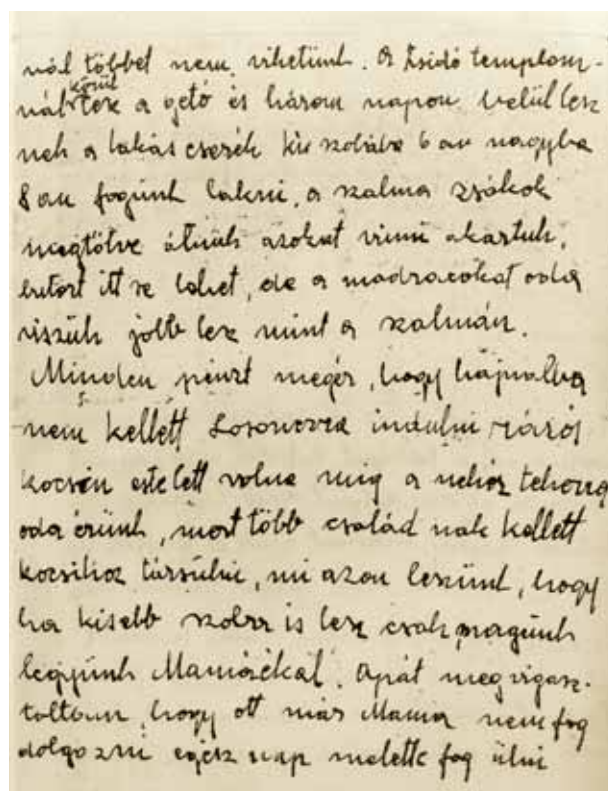 nál többet nem vihetünk. A zsidó templom-
nál körül lesz a getó és három napon belül lesz
nek a lakás cserék kis szobába 6 an nagyba
8 an fogunk lakni, a szalma zsákok
megtöltve álnak azokat vinni akartuk,
butort itt se lehet, de a madracokat oda
viszük jobb lesz mint a szalmán.
Minden pénzt megér, hogy hajnalba
nem kellett Losoncra indulni rázós
kocsin este lett volna mig a nehéz
oda érünk, most több család nak kellett
kocsihoz társulni, mi azon leszünk, hogy
ha kisebb szoba is lesz csak magunk
legyünk Mamáékal. Apát megvigasz-
taltam, hogy ott már Mama nem fog
dolgozni egész nap melette fog ülni